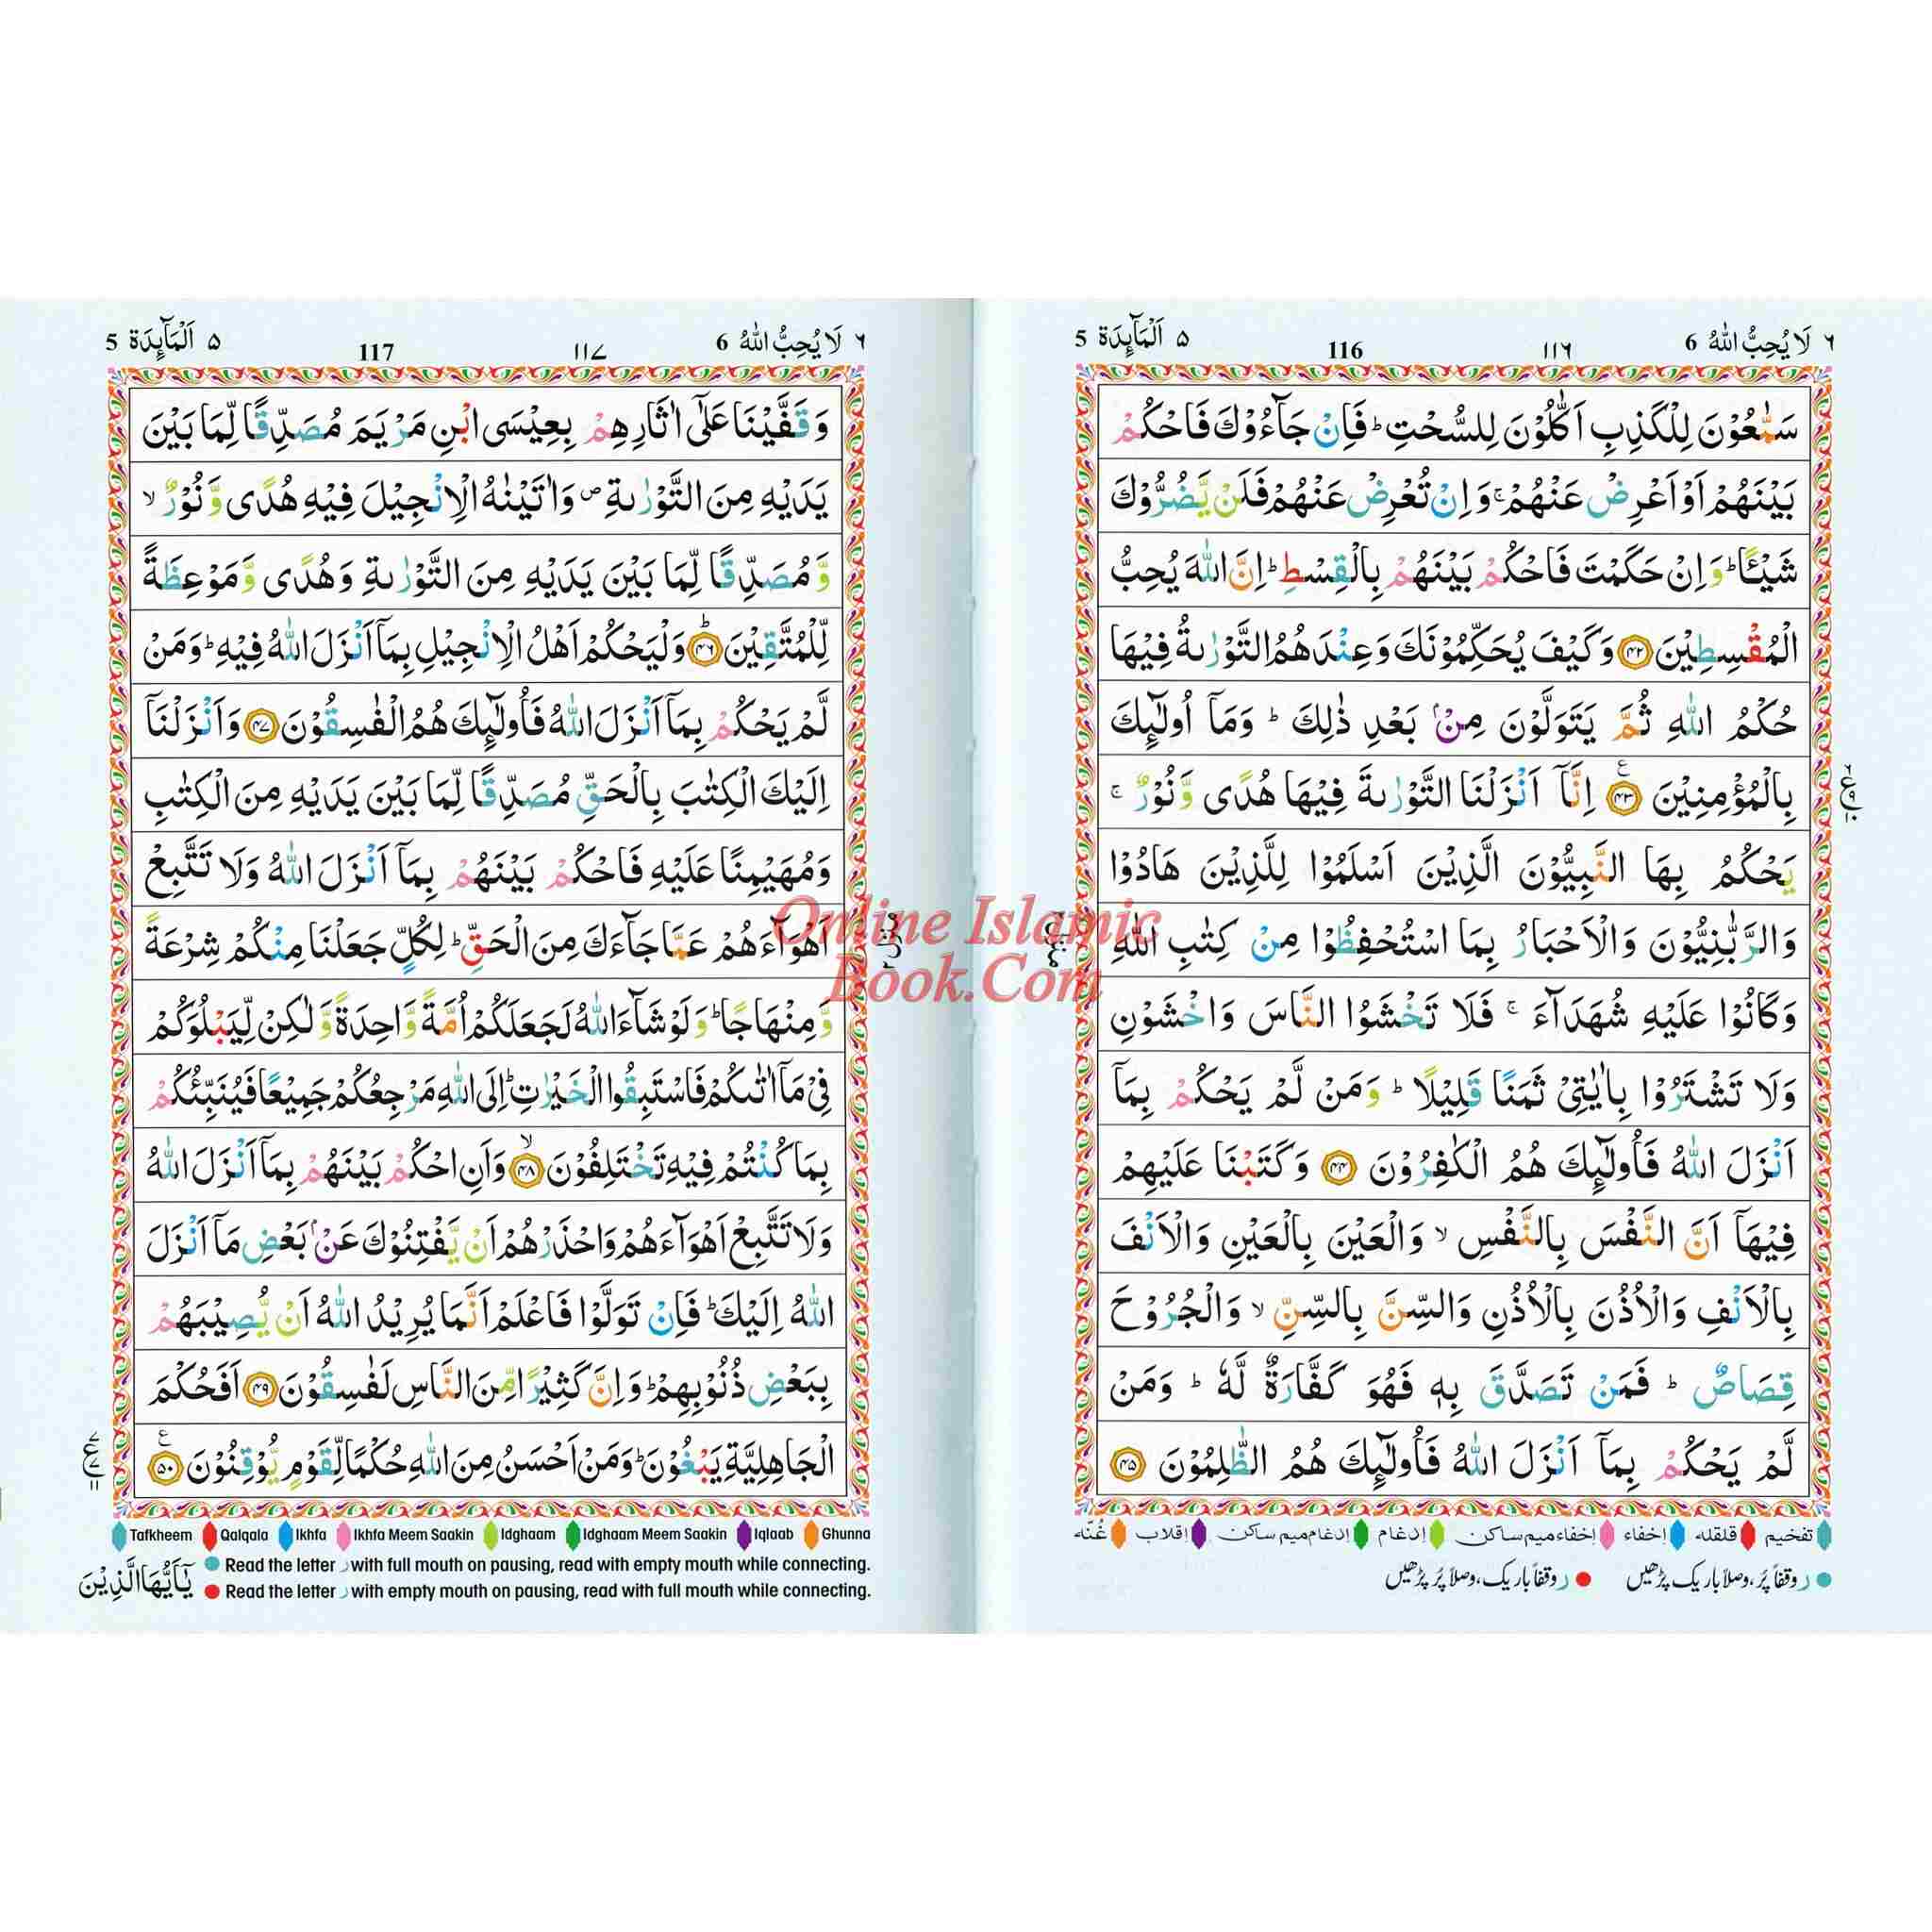 ٦ لَا يُحِبُّ اللّٰهُ 6
١١٦
116
٥ اَلْمَآئِدَة 5
سَمّٰعُوْنَ لِلْكَذِبِ اَكّٰلُوْنَ لِلسُّحْتِ ؕ فَاِنْ جَآءُوْكَ فَاحْكُمْ
بَيْنَهُمْ اَوْ اَعْرِضْ عَنْهُمْ ۚ وَاِنْ تُعْرِضْ عَنْهُمْ فَلَنْ يَّضُرُّوْكَ
شَيْـًٔا ؕ وَاِنْ حَكَمْتَ فَاحْكُمْ بَيْنَهُمْ بِالْقِسْطِ ؕ اِنَّ اللّٰهَ يُحِبُّ
الْمُقْسِطِيْنَ ﴿۴۲﴾ وَكَيْفَ يُحَكِّمُوْنَكَ وَعِنْدَهُمُ التَّوْرٰىةُ فِيْهَا
حُكْمُ اللّٰهِ ثُمَّ يَتَوَلَّوْنَ مِنْۢ بَعْدِ ذٰلِكَ ؕ وَمَاۤ اُولٰٓئِكَ
بِالْمُؤْمِنِيْنَ ﴿۴۳﴾ اِنَّاۤ اَنْزَلْنَا التَّوْرٰىةَ فِيْهَا هُدًى وَّنُوْرٌ ۚ
يَحْكُمُ بِهَا النَّبِيُّوْنَ الَّذِيْنَ اَسْلَمُوْا لِلَّذِيْنَ هَادُوْا
وَالرَّبّٰنِيُّوْنَ وَالْاَحْبَارُ بِمَا اسْتُحْفِظُوْا مِنْ كِتٰبِ اللّٰهِ
وَكَانُوْا عَلَيْهِ شُهَدَآءَ ۚ فَلَا تَخْشَوُا النَّاسَ وَاخْشَوْنِ
وَلَا تَشْتَرُوْا بِاٰيٰتِيْ ثَمَنًا قَلِيْلًا ؕ وَمَنْ لَّمْ يَحْكُمْ بِمَاۤ
اَنْزَلَ اللّٰهُ فَاُولٰٓئِكَ هُمُ الْكٰفِرُوْنَ ﴿۴۴﴾ وَكَتَبْنَا عَلَيْهِمْ
فِيْهَاۤ اَنَّ النَّفْسَ بِالنَّفْسِ ۙ وَالْعَيْنَ بِالْعَيْنِ وَالْاَنْفَ
بِالْاَنْفِ وَالْاُذُنَ بِالْاُذُنِ وَالسِّنَّ بِالسِّنِّ ۙ وَالْجُرُوْحَ
قِصَاصٌ ؕ فَمَنْ تَصَدَّقَ بِهٖ فَهُوَ كَفَّارَةٌ لَّهٗ ؕ وَمَنْ
لَّمْ يَحْكُمْ بِمَاۤ اَنْزَلَ اللّٰهُ فَاُولٰٓئِكَ هُمُ الظّٰلِمُوْنَ ﴿۴۵﴾
تفخیم قلقله إخفاء إخفاء میم ساکن إدغام إدغام میم ساکن إقلاب غُنّه
ر وقفاً پُر، وصلاً باریک پڑھیں ر وقفاً باریک، وصلاً پُر پڑھیں
٦ لَا يُحِبُّ اللّٰهُ 6
١١٧
117
٥ اَلْمَآئِدَة 5
وَقَفَّيْنَا عَلٰۤى اٰثَارِهِمْ بِعِيْسَى ابْنِ مَرْيَمَ مُصَدِّقًا لِّمَا بَيْنَ
يَدَيْهِ مِنَ التَّوْرٰىةِ ۪ وَاٰتَيْنٰهُ الْاِنْجِيْلَ فِيْهِ هُدًى وَّنُوْرٌ ۙ
وَّمُصَدِّقًا لِّمَا بَيْنَ يَدَيْهِ مِنَ التَّوْرٰىةِ وَهُدًى وَّمَوْعِظَةً
لِّلْمُتَّقِيْنَ ﴿۴۶﴾ؕ وَلْيَحْكُمْ اَهْلُ الْاِنْجِيْلِ بِمَاۤ اَنْزَلَ اللّٰهُ فِيْهِ ؕ وَمَنْ
لَّمْ يَحْكُمْ بِمَاۤ اَنْزَلَ اللّٰهُ فَاُولٰٓئِكَ هُمُ الْفٰسِقُوْنَ ﴿۴۷﴾ وَاَنْزَلْنَاۤ
اِلَيْكَ الْكِتٰبَ بِالْحَقِّ مُصَدِّقًا لِّمَا بَيْنَ يَدَيْهِ مِنَ الْكِتٰبِ
وَمُهَيْمِنًا عَلَيْهِ فَاحْكُمْ بَيْنَهُمْ بِمَاۤ اَنْزَلَ اللّٰهُ وَلَا تَتَّبِعْ
اَهْوَآءَهُمْ عَمَّا جَآءَكَ مِنَ الْحَقِّ ؕ لِكُلٍّ جَعَلْنَا مِنْكُمْ شِرْعَةً
وَّمِنْهَاجًا ؕ وَلَوْ شَآءَ اللّٰهُ لَجَعَلَكُمْ اُمَّةً وَّاحِدَةً وَّلٰكِنْ لِّيَبْلُوَكُمْ
فِيْ مَاۤ اٰتٰىكُمْ فَاسْتَبِقُوا الْخَيْرٰتِ ؕ اِلَى اللّٰهِ مَرْجِعُكُمْ جَمِيْعًا فَيُنَبِّئُكُمْ
بِمَا كُنْتُمْ فِيْهِ تَخْتَلِفُوْنَ ﴿۴۸﴾ۙ وَاَنِ احْكُمْ بَيْنَهُمْ بِمَاۤ اَنْزَلَ اللّٰهُ
وَلَا تَتَّبِعْ اَهْوَآءَهُمْ وَاحْذَرْهُمْ اَنْ يَّفْتِنُوْكَ عَنْۢ بَعْضِ مَاۤ اَنْزَلَ
اللّٰهُ اِلَيْكَ ؕ فَاِنْ تَوَلَّوْا فَاعْلَمْ اَنَّمَا يُرِيْدُ اللّٰهُ اَنْ يُّصِيْبَهُمْ
بِبَعْضِ ذُنُوْبِهِمْ ؕ وَاِنَّ كَثِيْرًا مِّنَ النَّاسِ لَفٰسِقُوْنَ ﴿۴۹﴾ اَفَحُكْمَ
الْجَاهِلِيَّةِ يَبْغُوْنَ ؕ وَمَنْ اَحْسَنُ مِنَ اللّٰهِ حُكْمًا لِّقَوْمٍ يُّوْقِنُوْنَ ﴿۵۰﴾
Tafkheem Qalqala Ikhfa Ikhfa Meem Saakin Idghaam Idghaam Meem Saakin Iqlaab Ghunna
Read the letter ر with full mouth on pausing, read with empty mouth while connecting.
Read the letter ر with empty mouth on pausing, read with full mouth while connecting.
يٰۤاَيُّهَا الَّذِيْنَ
Online Islamic
Book.Com